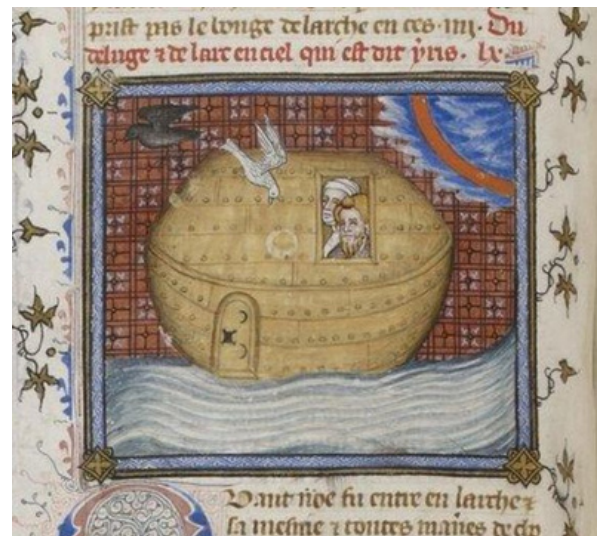 prist pas le longe de larche en ces .iiij. Du
deluge ⁊ de larc en ciel qui est dit yris. lx.
Qvant noe fu entre en larche ⁊
sa mesme ⁊ toutes maĩes de